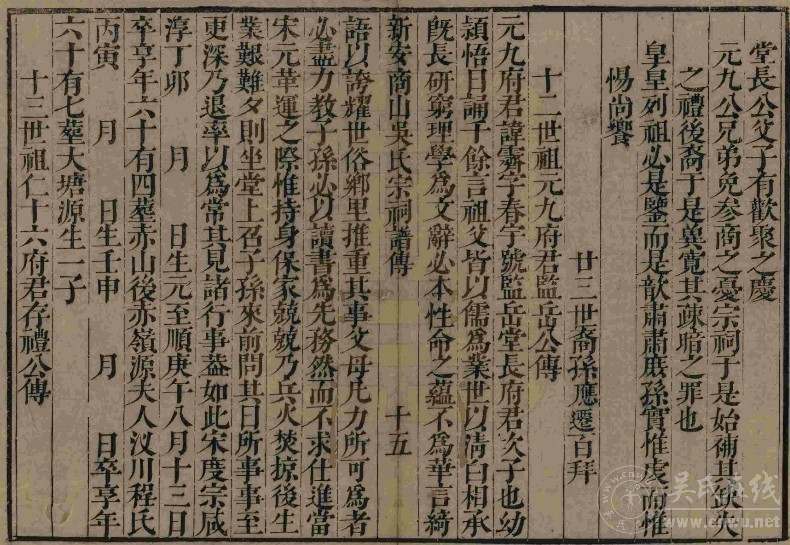 堂長公父子有歡聚之慶
元九公兄弟免參商之憂宗祠于是始補其缺失
之禮後裔于是冀寬其疎暗之罪也
皇皇列祖必是鑒而是歆肅肅厥孫實惟虔而惟
惕尚饗
廿三世裔孫應遷百拜
十二世祖元九府君監岳公傳
元九府君諱霽字春宇號監岳堂長府君次子也幼
頴悟日誦千餘言祖父皆以儒為業世以清白相承
既長研窮理學為文辭必本性命之蘊不為華言綺
新安商山吳氏宗祠譜傳
十五
語以誇耀世俗鄉里推重其事父母凡力所可為者
必盡力教子孫必以讀書爲先務然而不求仕進當
宋元革運之際惟持身保家兢兢乃兵火焚掠後生
業艱難夕則坐堂上召子孫來前問其日所事事至
更深乃退率以爲常其見諸行事葢如此宋度宗咸
淳丁卯 月 日生元至順庚午八月十三日
卒享年六十有四葬赤山後亦嶺源夫人汊川程氏
丙寅 月 日生壬申 月 日卒享年
六十有七葬大塘源生一子
十三世祖仁十六府君存禮公傳
吴氏在线
www.cnwu.net